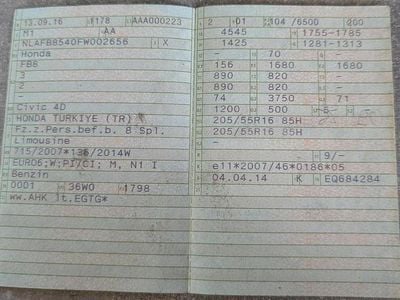 13.09.16 1178 AAA000223
M1 AA
NLAFB8540FW002656 X
Honda
FB8
3
2
-
Civic 4D
HONDA TURKIYE (TR)
Fz.z.Pers.bef.b. 8 Spl.
Limousine
715/2007*136/2014W
EURO6;W;PI/CI; M, N1 I
Benzin
0001 36W0 1798
ww.AHK lt.EGTG*
2 01 104 /6500 200
4545 1755-1785
1425 1281-1313
- 70 -
156 1680 1680
890 820 -
890 820 -
74 3750 71
1200 500 - -
205/55R16 85H
205/55R16 85H
-
9/-
e11*2007/46*0186*05
04.04.14 K EQ684284